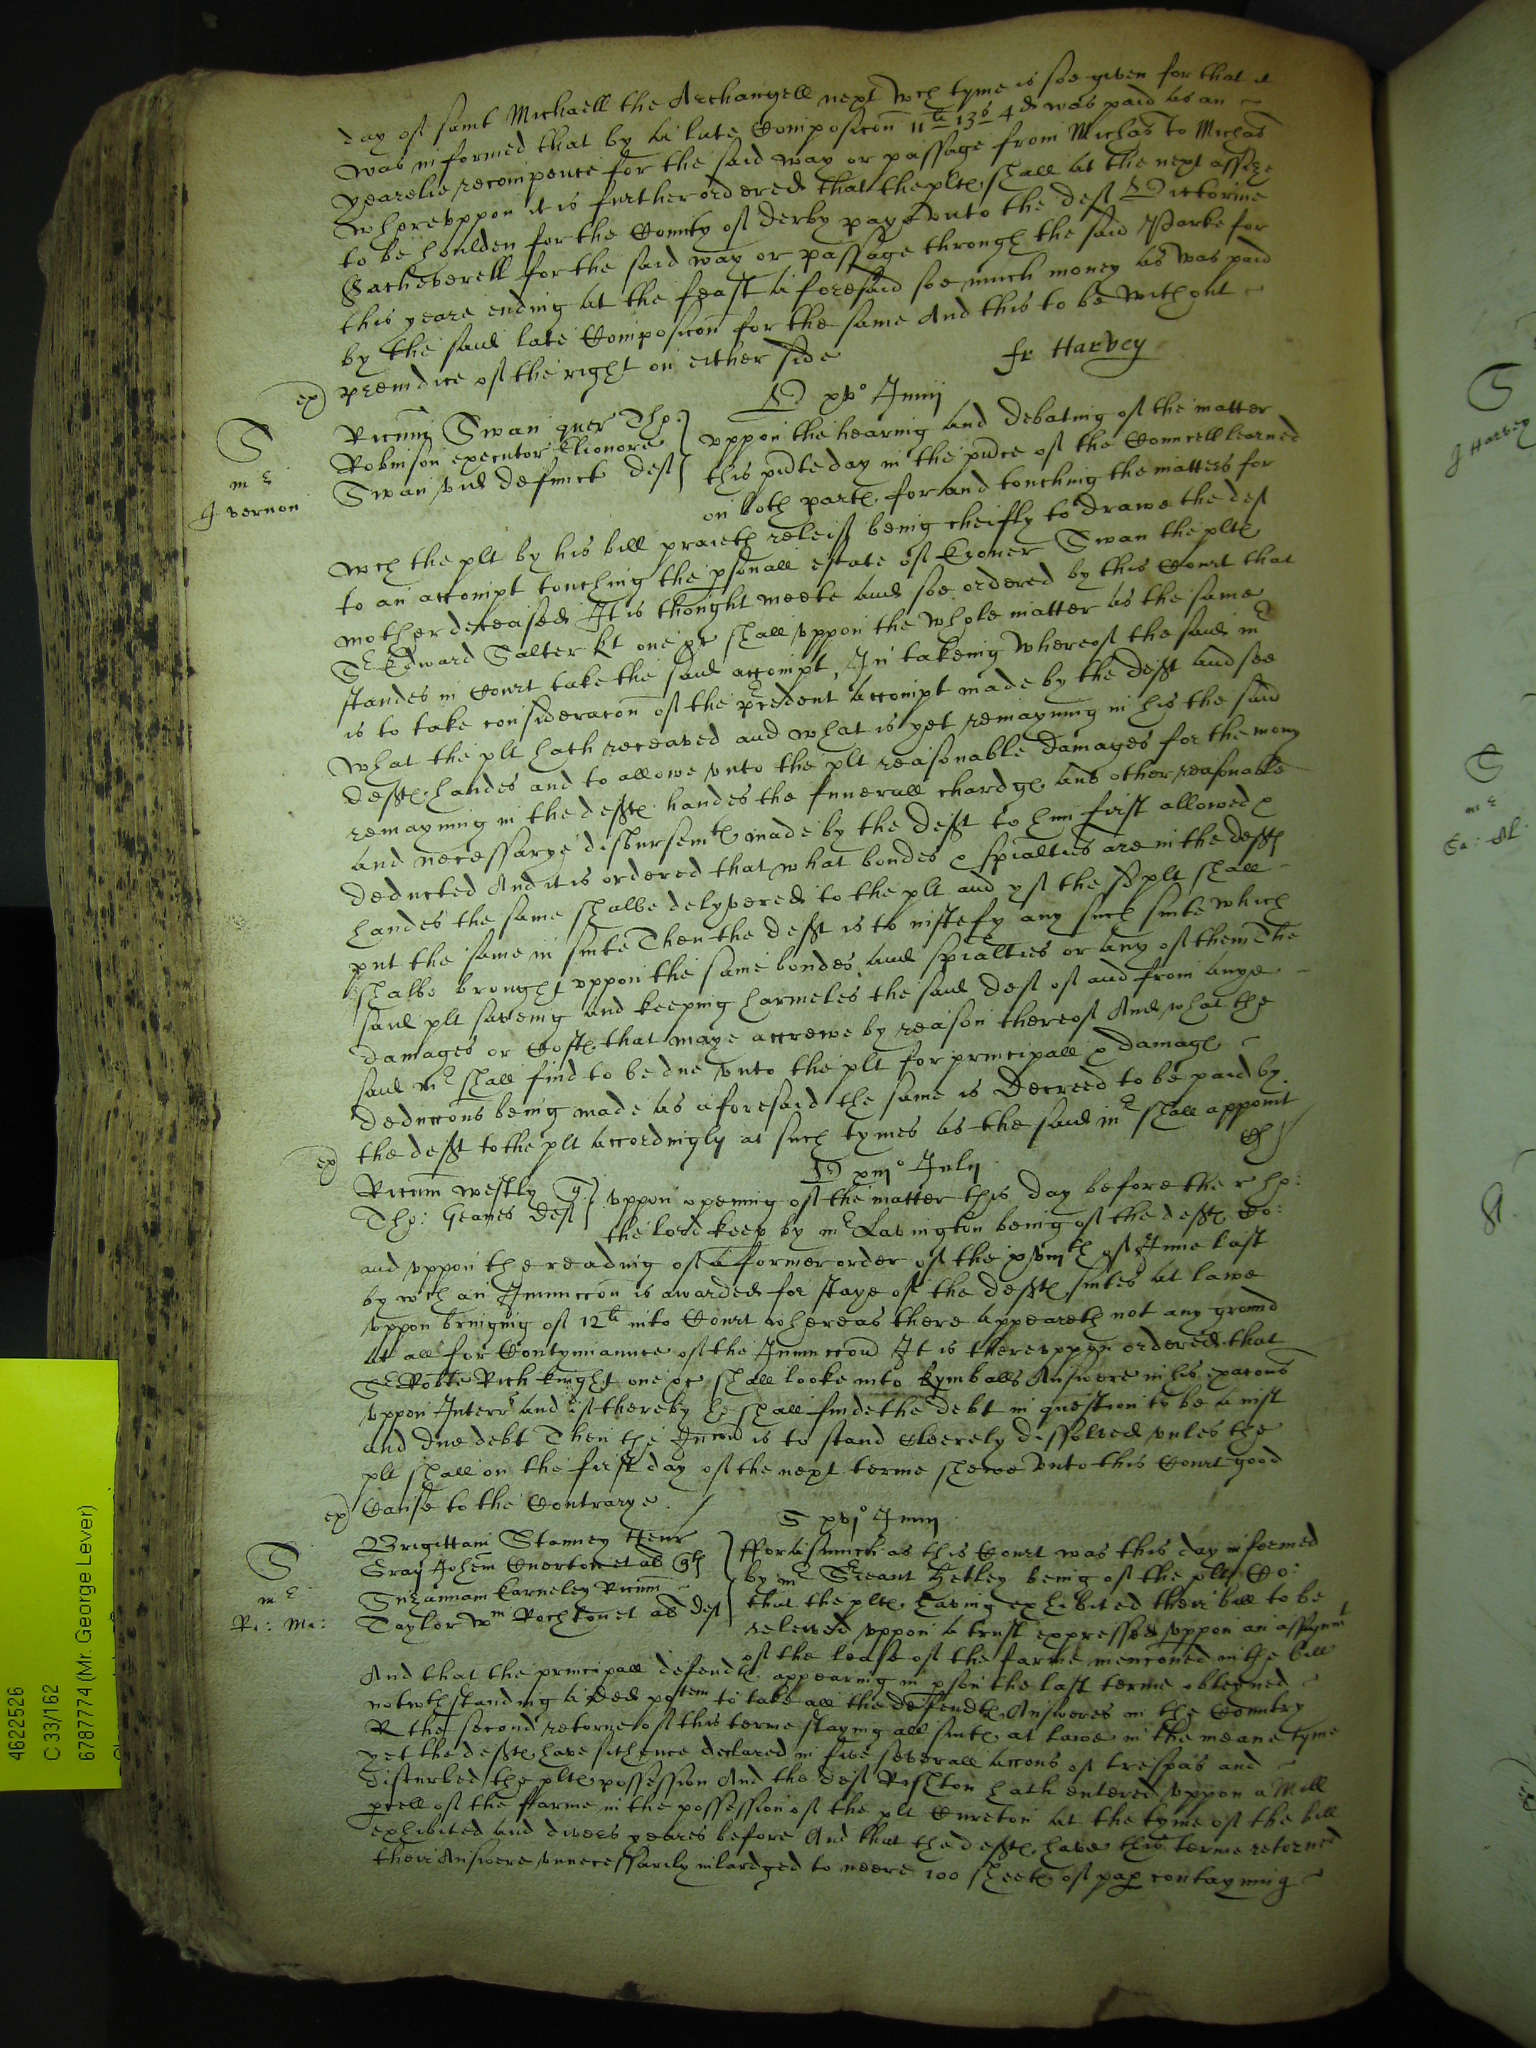 day of saint Michaell the Archangell next wch tyme is soe given for that it
was informed that by a late Composicon 11li 13s 4d was paid as an
yearelie recompence for the said way or passage from Michas to Michas
Wherevppon it is further ordered that the plte shall at the next assize
to be houlden for the County of Derby paye vnto the deft Victorine
Sacheverell for the said way or passage through the said Parke for
this yeare ending at the feast aforesaid soe much money as was paid
by the said late Composicon for the same And this to be without
preiudice of the right on either side
fr Harvey
ex
D xvo Junij
S
mr
J vernon
Ricum Swan quer Tho:
Robinson executor Elionore
Swan vid defunct deft
vppon the hearing and debating of the matter
this pnte day in the pnce of the Councell learned
on both parte for and touching the matters for
wch the plt by his bill praieth releif being cheifly to drawe the def
to an accompt touching the psonall estate of Elioner Swan the plte
mother deceased It is thought meete and soe ordered by this Court that
Sr Edward Salter kt one &c shall vppon the whole matter as the same
standes in Court take the said accompt, In takeing whereof the said mr
is to take consideracon of the precedent accompt made by the deft and see
what the plt hath receaved and what is yet remayning in his the said
defte handes and to allowe vnto the plt reasonable damages for the mony
remayning in the defte handes the funerall chardge and other reasonable
and necessarye disbursemte made by the deft to him first allowed &
deducted And it is ordered that what bondes & spialties are in the defte
handes the same shalbe delyvered to the plt and yf the sd plt shall
put the same in suite Then the deft is to iustefy any such suite which
shalbe brought vppon the same bondes and spialties or any of them The
said plt saveing and keeping harmeles the said deft of and from anye
damages or Coste that maye accrewe by reason thereof And what the
said mr shall find to be due vnto the plt for principall & damage
deduccons being made as aforesaid the same is Decreed to be paid by
the deft to the plt accordingly at such tymes as the said mr shall appoint
ex
D xiijo Julij
Ricum westly q
Tho: Geanes deft
vppon opening of the matter this day before the r ho:
the lord keep by mr Lavington being of the defte Co:
and vppon the reading of a former order of the xviijth of June last
by wch an Iniunccon is awarded for staye of the defte suites at lawe
vppon bringing of 12li into Court whereas there appeareth not any ground
at all for Contynuaunce of the Iniunccon It is therevppon ordered that
Sr Robte Rich knight one &c shall looke into kymballs Answere in his exacons
vppon Interr and if thereby he shall finde the debt in question to be a iust
and due debt Then the Iniucon is to stand Cleerely dissolved vnles the
plt shall on the first day of the next terme shewe vnto this Court good
Cause to the Contrarye
ex
S xvjo Junij
S
mr
Ri: Ma:
Brigittam Stanney Henr
Gray Johem Cuerton et al qh
Suzannam karneley Ricum
Taylor Wm et al deft
Fforasmuch as this Court was this day informed
by mr Sreant Hetley being of the plte Co:
that the plte having exhibited their bill to be
releived vppon a trust expressed vppon an assignmt
of the lease of the farme mencioned in the bill
And that the principall defendte appearing in pson the last terme obteyned
notwthstanding a ded potem to take all the defendte Answeres in the Countrey
R the second retorne of this terme staying all suite at lawe in the meane tyme
yet the defte have sithence declared in five severall accons of trespas and
disturbed the plte possession And the deft Rishton hath entered vppon a Mill
pcell of the fFarme in the possession of the plt Cureton at the tyme of the bill
exhibited and divers yeares before And that the defte have this terme retorned
their Answere vnnecessarily inlardged to neere 100 sheete of pap contayning
S
J Harvey
S
mr
4622526
C 33/162
67877774 (Mr. George Lever)